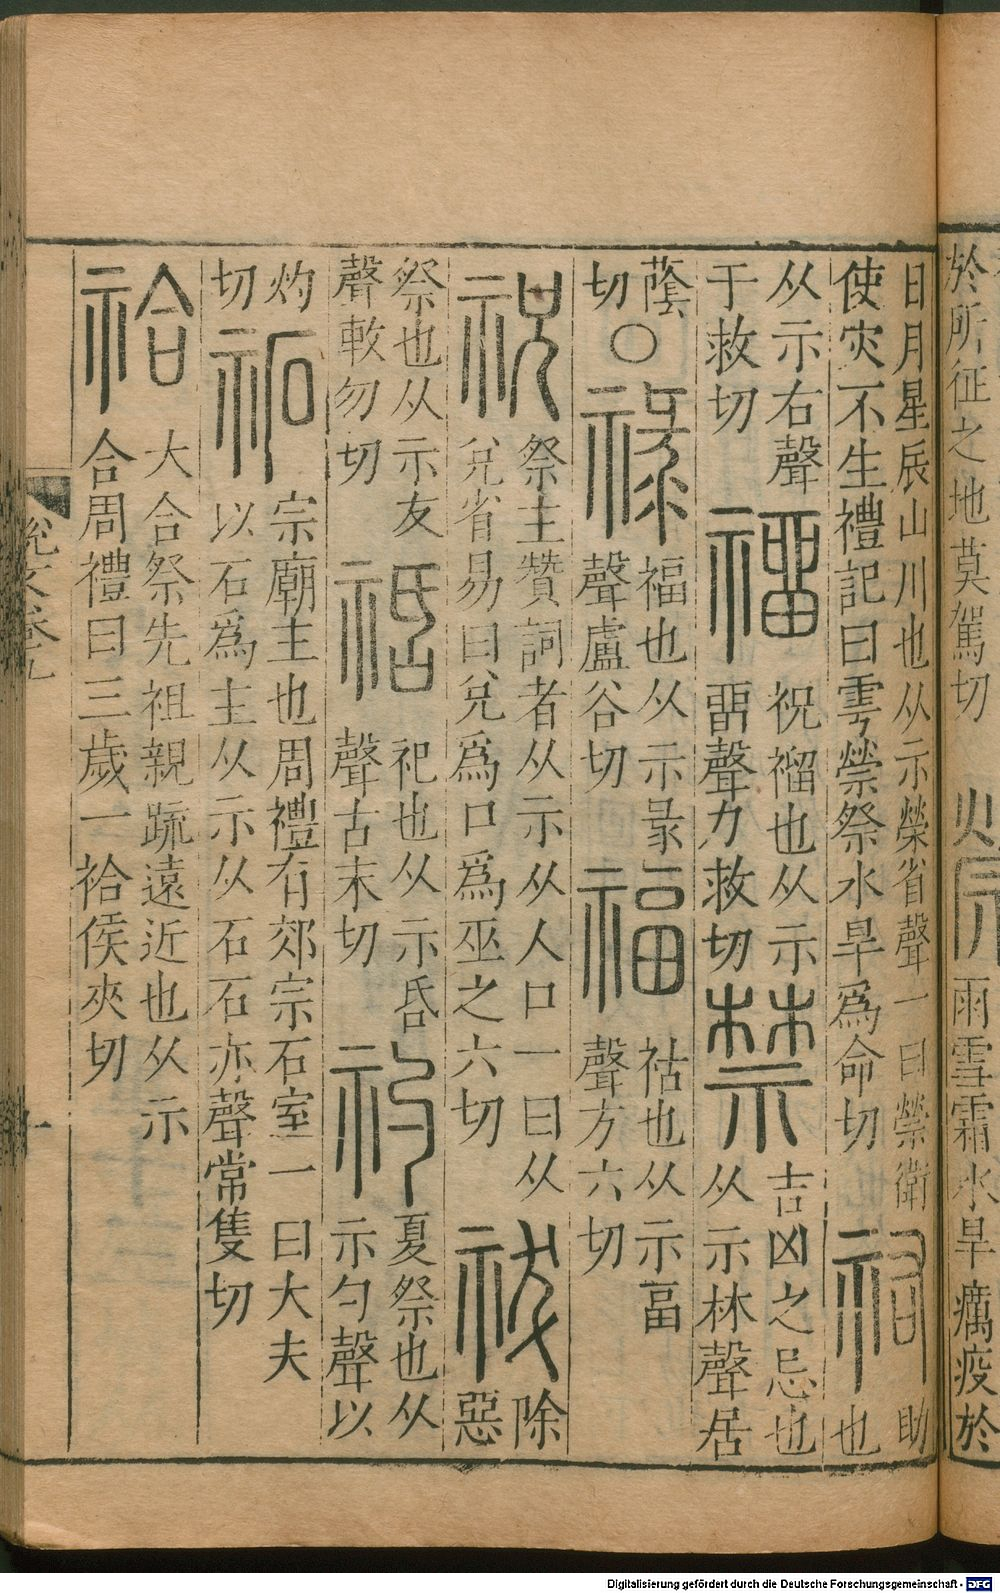 於所征之地莫駕切
禜
雨雪霜水旱癘疫於
日月星辰山川也从示榮省聲一曰禜衛
使灾不生禮記曰雩禜祭水旱爲命切
祐
助
也
从示右聲
于救切
𥛅
祝𥛅也从示
畱聲力救切
禁
吉凶之忌也
从示林聲居
蔭
切
○
祿
福也从示彔
聲盧谷切
福
祜也从示畐
聲方六切
祝
祭主贊詞者从示从人口一曰从
兌省易曰兌爲口爲巫之六切
祓
除
惡
祭也从示犮
聲勿切
祀也从示昏
聲古末切
礿
夏祭也从
示勺聲以
灼
切
祏
宗廟主也周禮有郊宗石室一曰大夫
以石爲主从示从石石亦聲常隻切
祫
大合祭先祖親疏遠近也从示
合周禮曰三歲一祫侯夾切
說文卷九
Digitalisierung gefördert durch die Deutsche Forschungsgemeinschaft - DFG